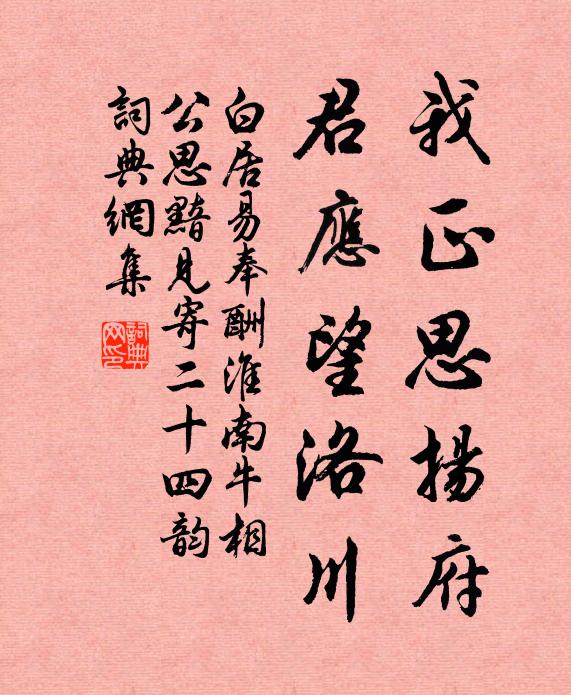 我正思揚府
君應望洛川
白居易奉酬淮南牛相
公思黯見寄二十四韵
詞典網集
詞典
网印